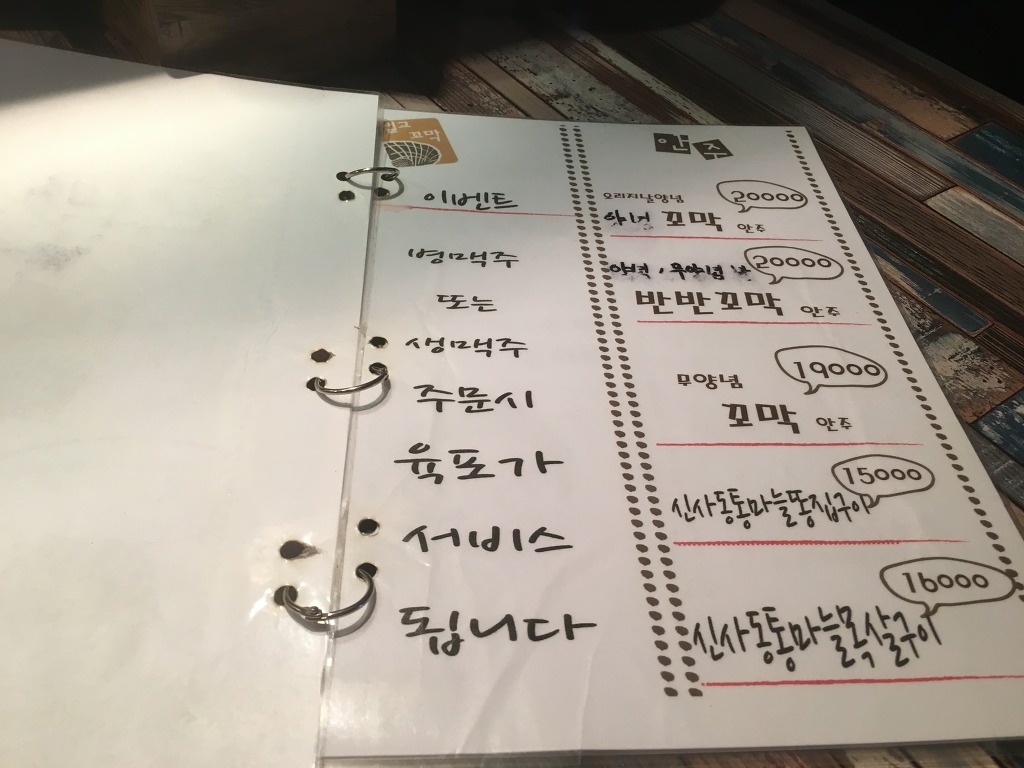 꼬막
이벤트
병맥주
또는
생맥주
주문시
육포가
서비스
됩니다
안주
오리지날양념
20000
양념 꼬막 안주
20000
반반꼬막 안주
19000
무양념
꼬막 안주
15000
신사동통마늘똥집구이
16000
신사동통마늘목살구이